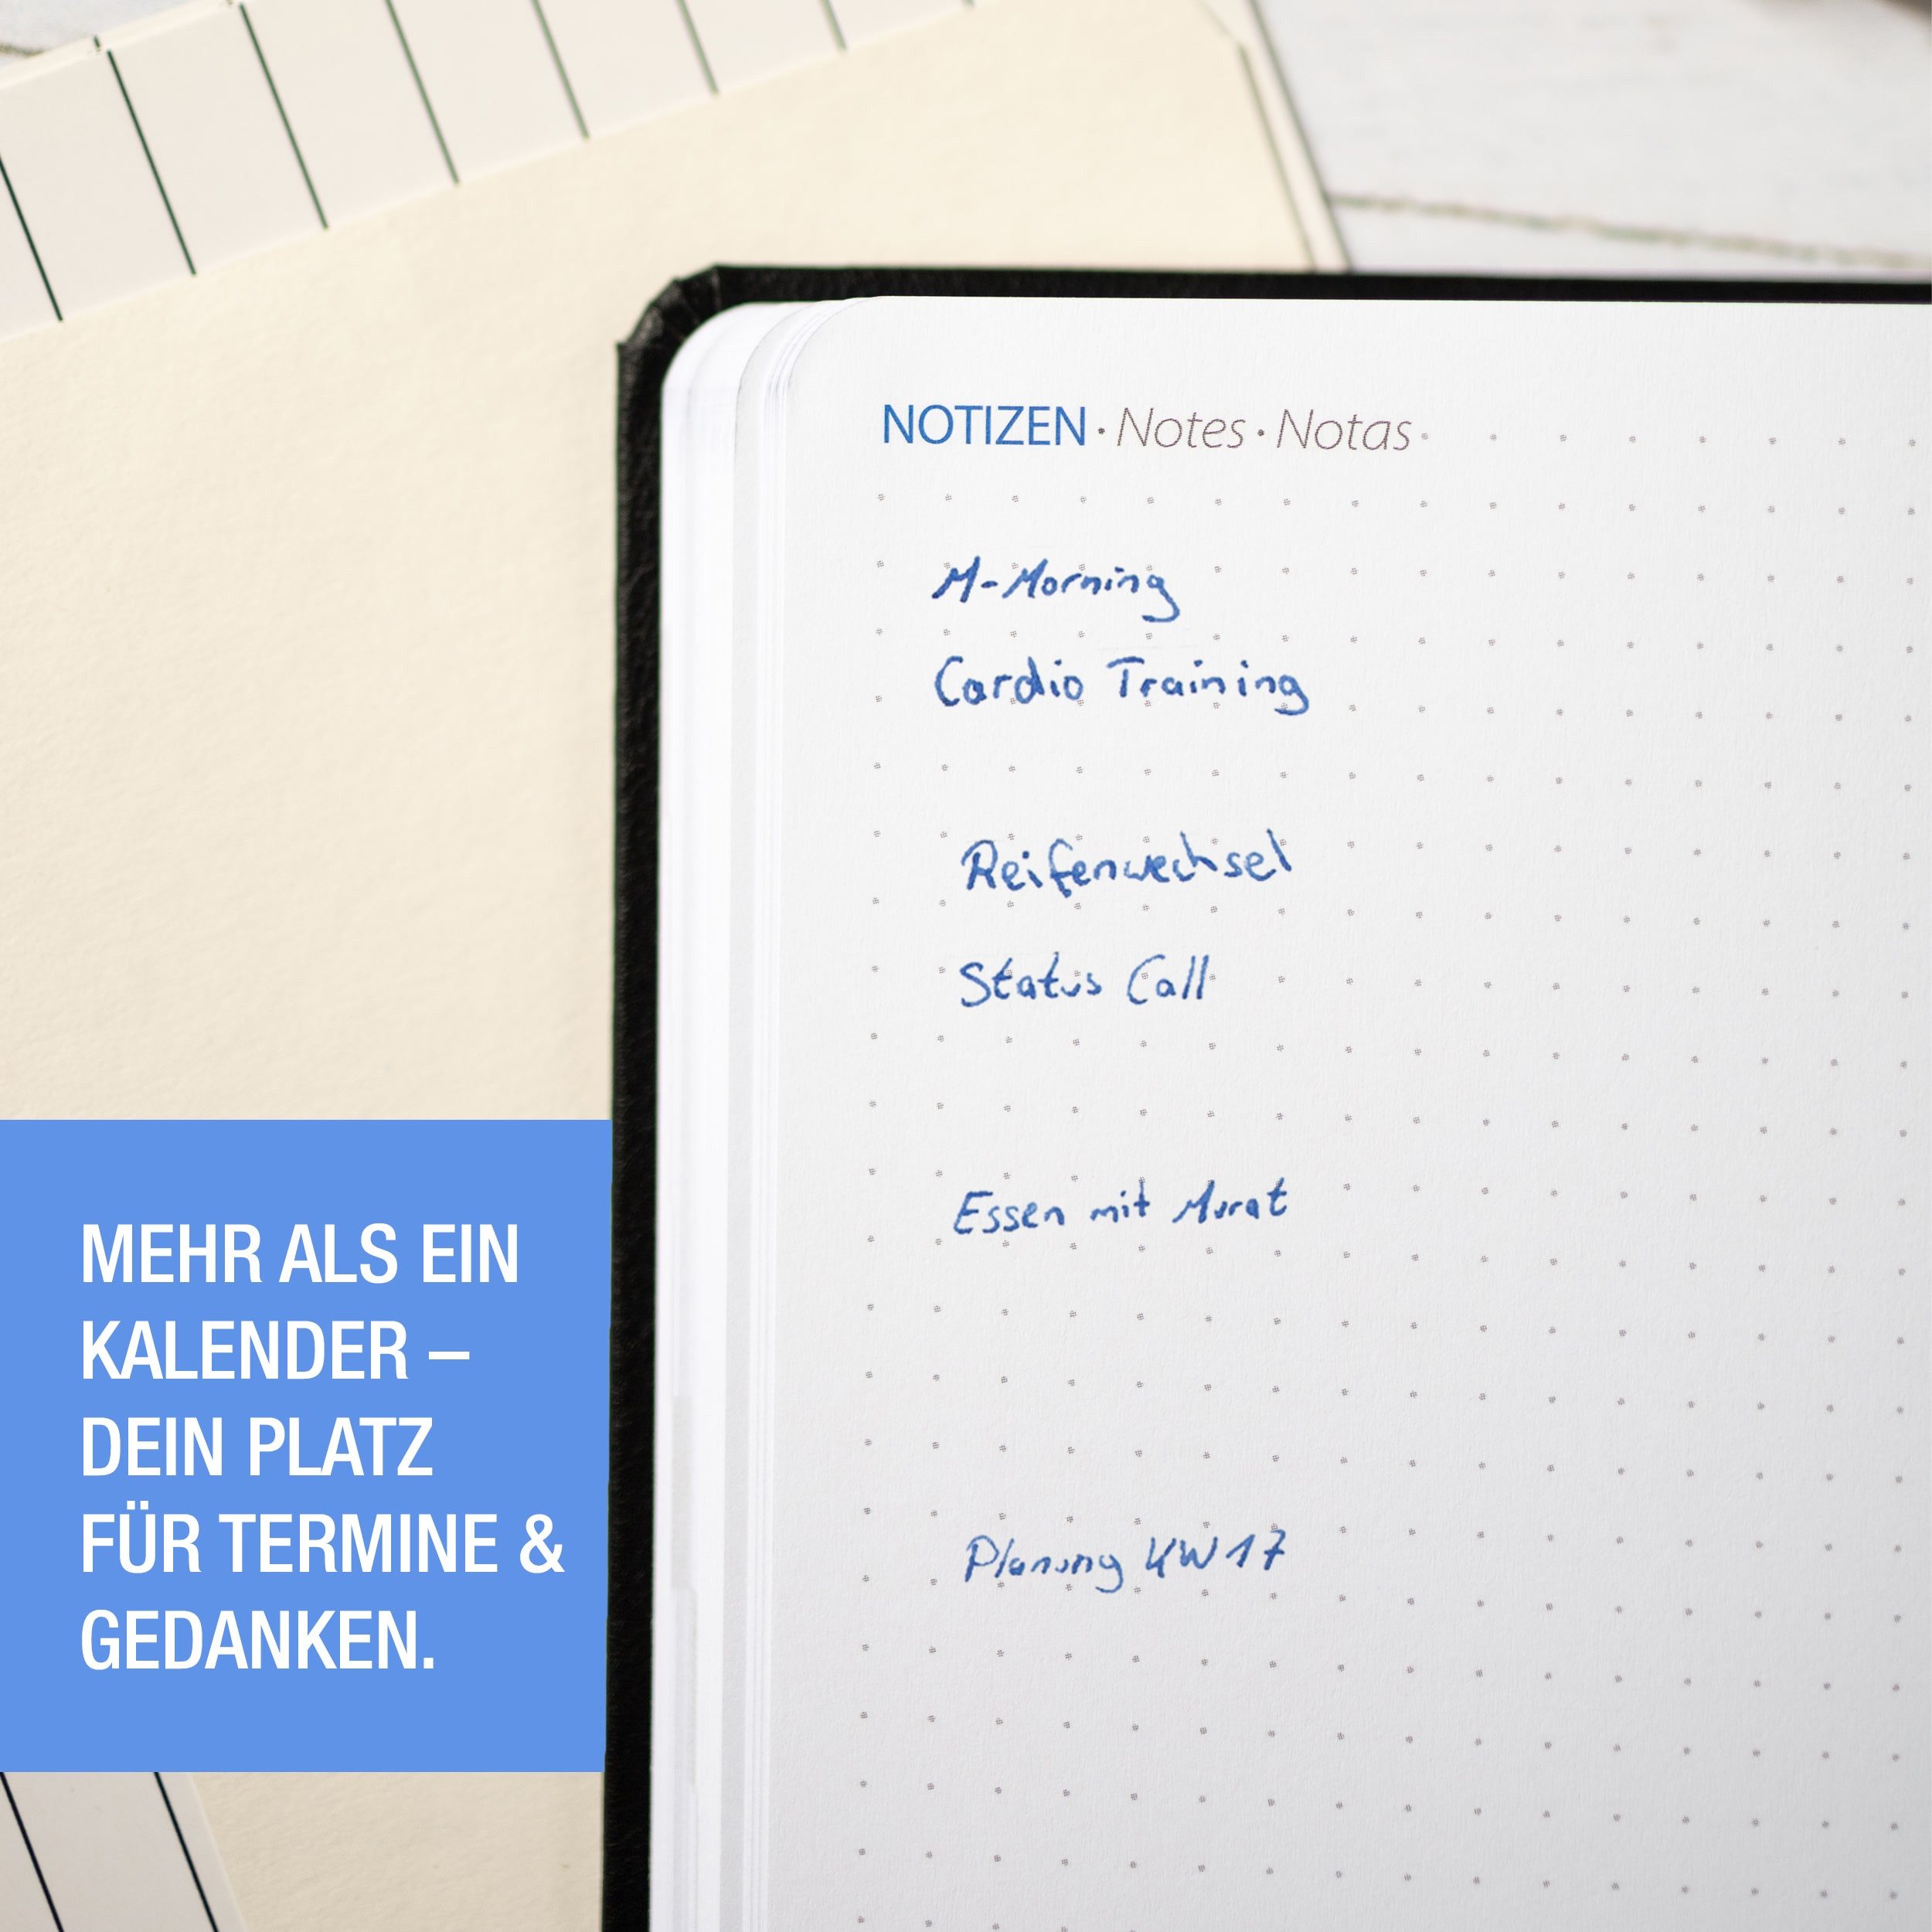 NOTIZEN · Notes · Notas
M-Morning
Cardio Training
Reifenwechsel
Status Call
Essen mit Murat
Planung KW 17
MEHR ALS EIN
KALENDER –
DEIN PLATZ
FÜR TERMINE &
GEDANKEN.